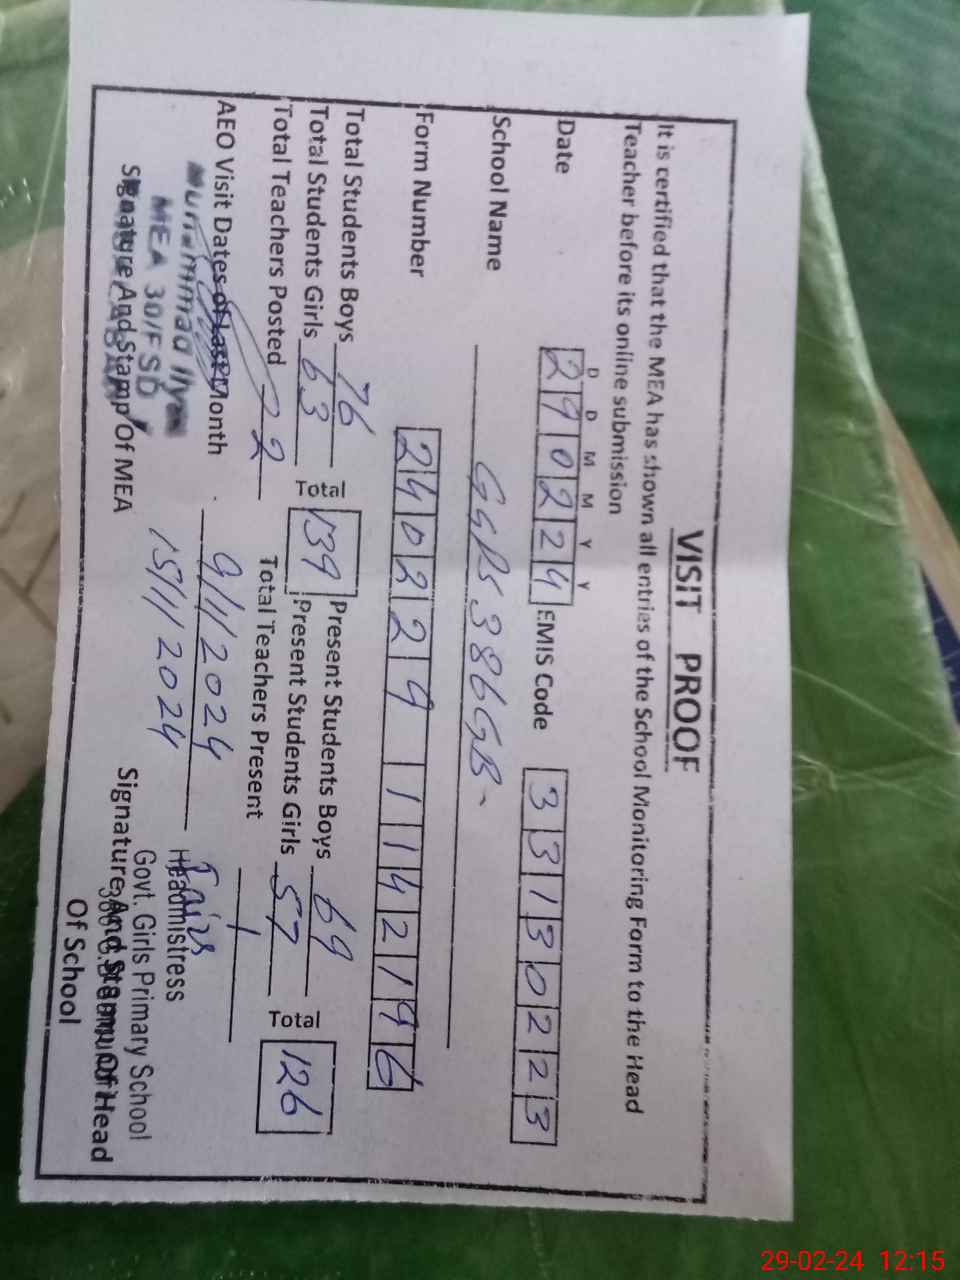 VISIT PROOF
It is certified that the MEA has shown all entries of the School Monitoring Form to the Head
Teacher before its online submission
D D M M Y Y
Date 290224 EMIS Code 33130223
School Name GGPS 386GB-
Form Number 240229 1142196
Total Students Boys 76 Total 139 Present Students Boys 69 Total 126
Total Students Girls 63 Present Students Girls 57
Total Teachers Posted 2 Total Teachers Present 1
AEO Visit Dates of Last Month 9/1/2024
15/1/2024
Muhammad Ilyas
MEA 30/FSD
Signature And Stamp Of MEA
Headmistress
Govt. Girls Primary School
Signature And Stamp Of Head
Of School
29-02-24 12:15